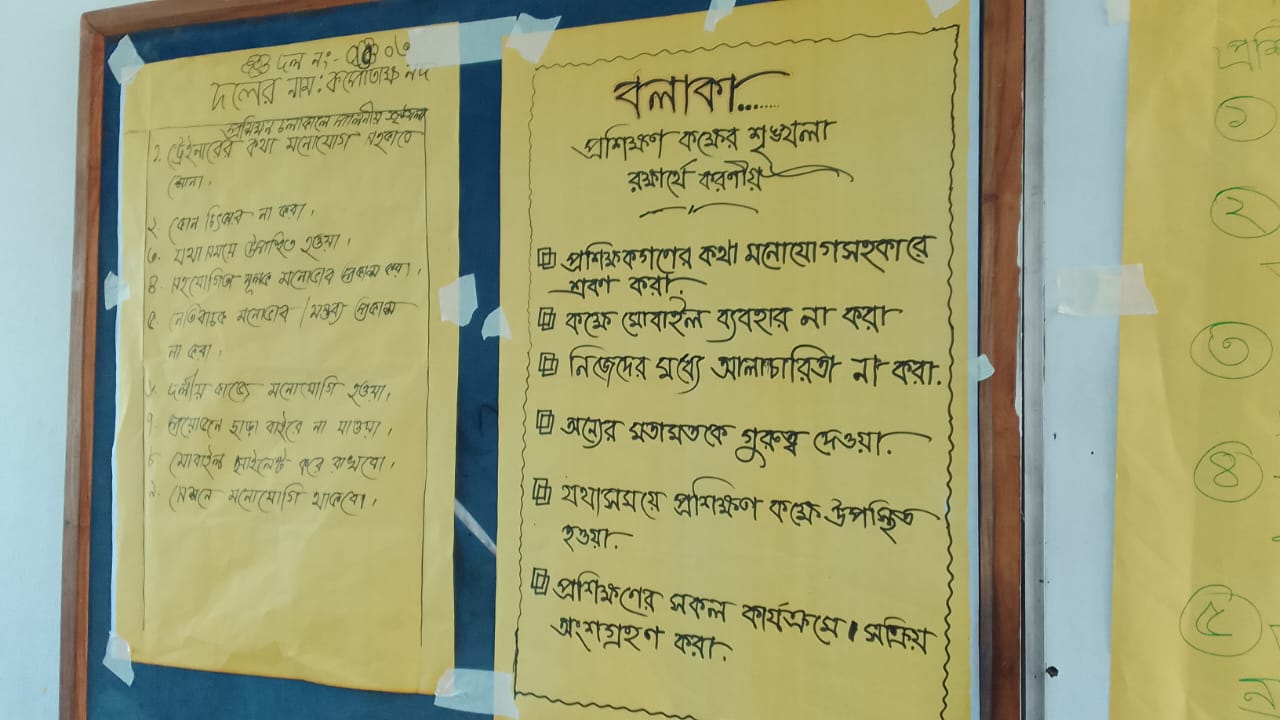 দল নং- ০৬
দলের নাম: কপোতাক্ষ নদ
প্রশিক্ষন চলাকালে পালনীয় শৃঙ্খলা
১. ট্রেইনারের কথা মনোযোগ সহকারে
শোনা।
২. কোন চিৎকার না করা।
৩. যথা সময়ে উপস্থিত হওয়া।
৪. সহযোগিতা মূলক মনোভাব প্রকাশ করা।
৫. নেতিবাচক মনোভাব / মন্তব্য প্রকাশ
না করা।
৬. দলীয় কাজে মনোযোগি হওয়া।
৭. প্রয়োজনে ছাড়া বাইরে না যাওয়া।
৮. মোবাইল সাইলেন্ট করে রাখবো।
৯. সেশনে মনোযোগি থাকবো।
বলাকা...
প্রশিক্ষণ কক্ষের শৃঙ্খলা
রক্ষার্থে করণীয়
প্রশিক্ষকগণের কথা মনোযোগসহকারে
শ্রবণ করা.
কক্ষে মোবাইল ব্যবহার না করা
নিজেদের মধ্যে আলাচারিতা না করা.
অন্যের মতামতকে গুরুত্ব দেওয়া.
যথাসময়ে প্রশিক্ষণ কক্ষে উপস্থিত
হওয়া.
প্রশিক্ষণের সকল কার্যক্রমে। সক্রিয়
অংশগ্রহণ করা.
১
২
৩
৪
৫